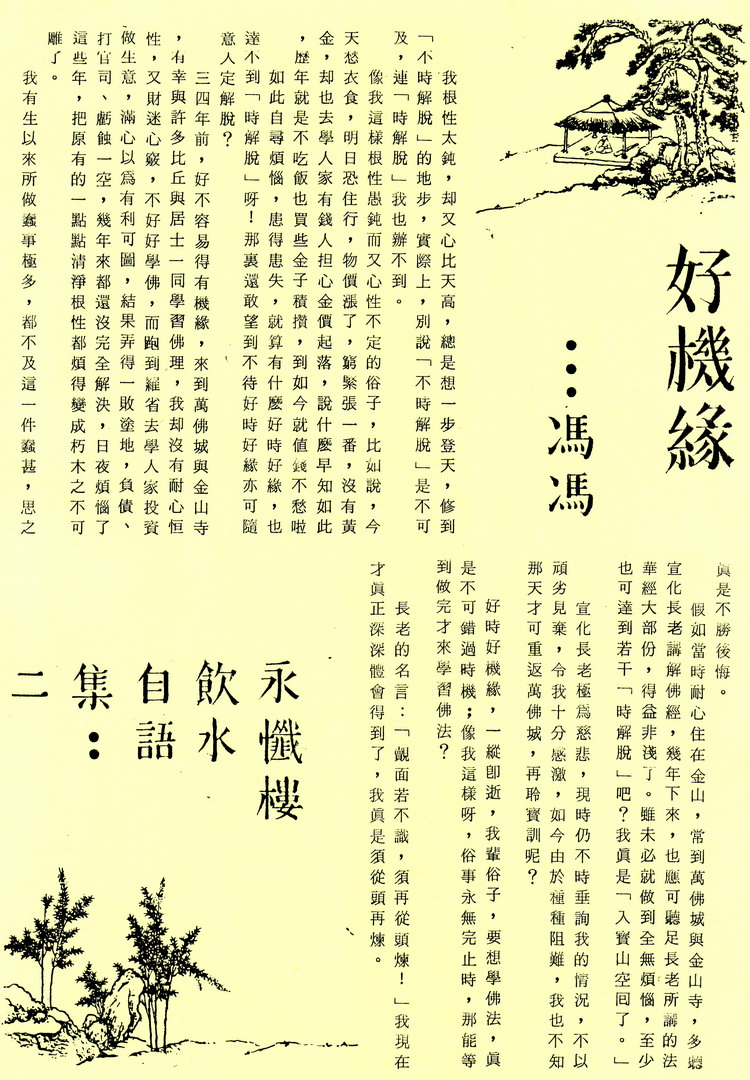 好機緣
⋯馮馮
我根性太鈍，却又心比天高，總是想一步登天，修到
「不時解脫」的地步，實際上，別說「不時解脫」是不可
及，連「時解脫」我也辦不到。
像我這樣根性愚鈍而又心性不定的俗子，比如說，今
天愁衣食，明日恐住行，物價漲了，窮緊張一番，沒有黃
金，却也去學人家有錢人担心金價起落，說什麽早知如此
，歷年就是不吃飯也買些金子積攢，到如今就值錢不愁啦
如此自尋煩惱，患得患失，就算有什麽好時好緣，也
達不到「時解脫」呀！那裏還敢望到不待好時好緣亦可隨
意人定解脫？
三四年前，好不容易得有機緣，來到萬佛城與金山寺
，有幸與許多比丘與居士一同學習佛理，我却沒有耐心恒
性，又財迷心竅，不好好學佛，而跑到羅省去學人家投資
做生意，滿心以爲有利可圖，結果弄得一敗塗地，負債、
打官司、虧蝕一空，幾年來都還沒完全解決，日夜煩惱了
這些年，把原有的一點點清淨根性都煩得變成朽木之不可
雕了。
我有生以來所做蠢事極多，都不及這一件蠢甚，思之
眞是不勝後悔。
假如當時耐心住在金山，常到萬佛城與金山寺，多聽
宣化長老講解佛經，幾年下來，也應可聽足長老所講的法
華經大部份，得益非淺了。雖未必就做到全無煩惱，至少
也可達到若干「時解脫」吧？我眞是「入寳山空囘了。」
宣化長老極爲慈悲，現時仍不時垂詢我的情況，不以
頑劣見棄，令我十分感激，如今由於種種阻難，我也不知
那天才可重返萬佛城，再聆寳訓呢？
好時好機緣，一縱卽逝，我輩俗子，要想學佛法，眞
是不可錯過時機；像我這樣呀，俗事永無完止時，那能等
到做完才來學習佛法？
長老的名言：「覿面若不識，須再從頭煉！」我現在
才眞正深深體會得到了，我眞是須從頭再煉。
永懺樓
飲水
自語
集：
二